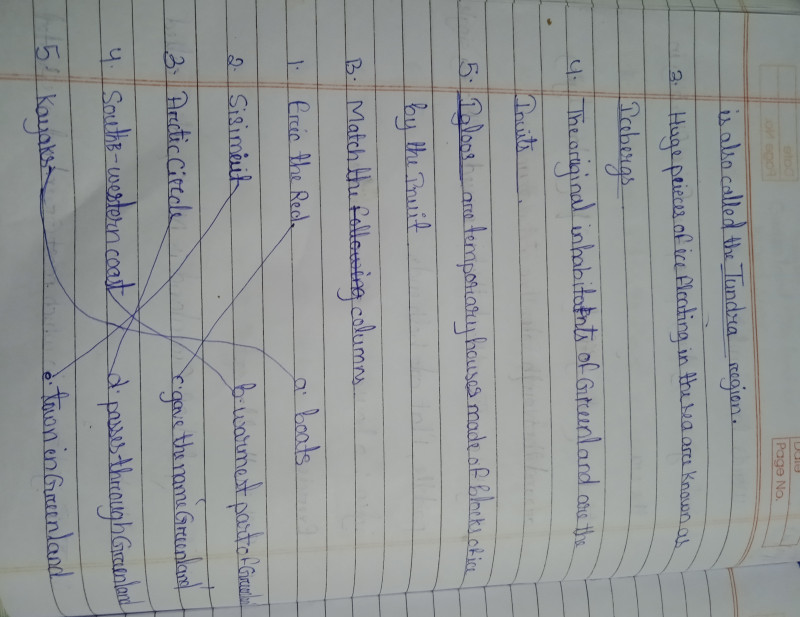 Date
Page No.
is also called the Tundra region.
3. Huge peieces of ice floating in the sea are known as
Icebergs.
4. The original inhabitatnts of Greenland are the
Inuits.
5. Igloos are temporiary houses made of blocks of ice
by the Inuit.
B. Match the following columns
1. Eric the Red a. boats
2. Sisimiut b. warmest part of Greenland
3. Arctic Circle c. gave the name Greenland
4. South-western coast d. passes through Greenland
5. Kayaks e. town in Greenland